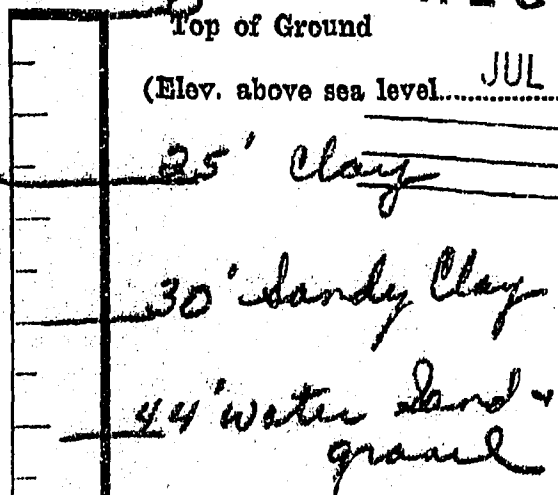 Top of Ground
(Elev. above sea level.......... JUL
25' Clay
30' Sandy Clay
44' water Sand &
gravel